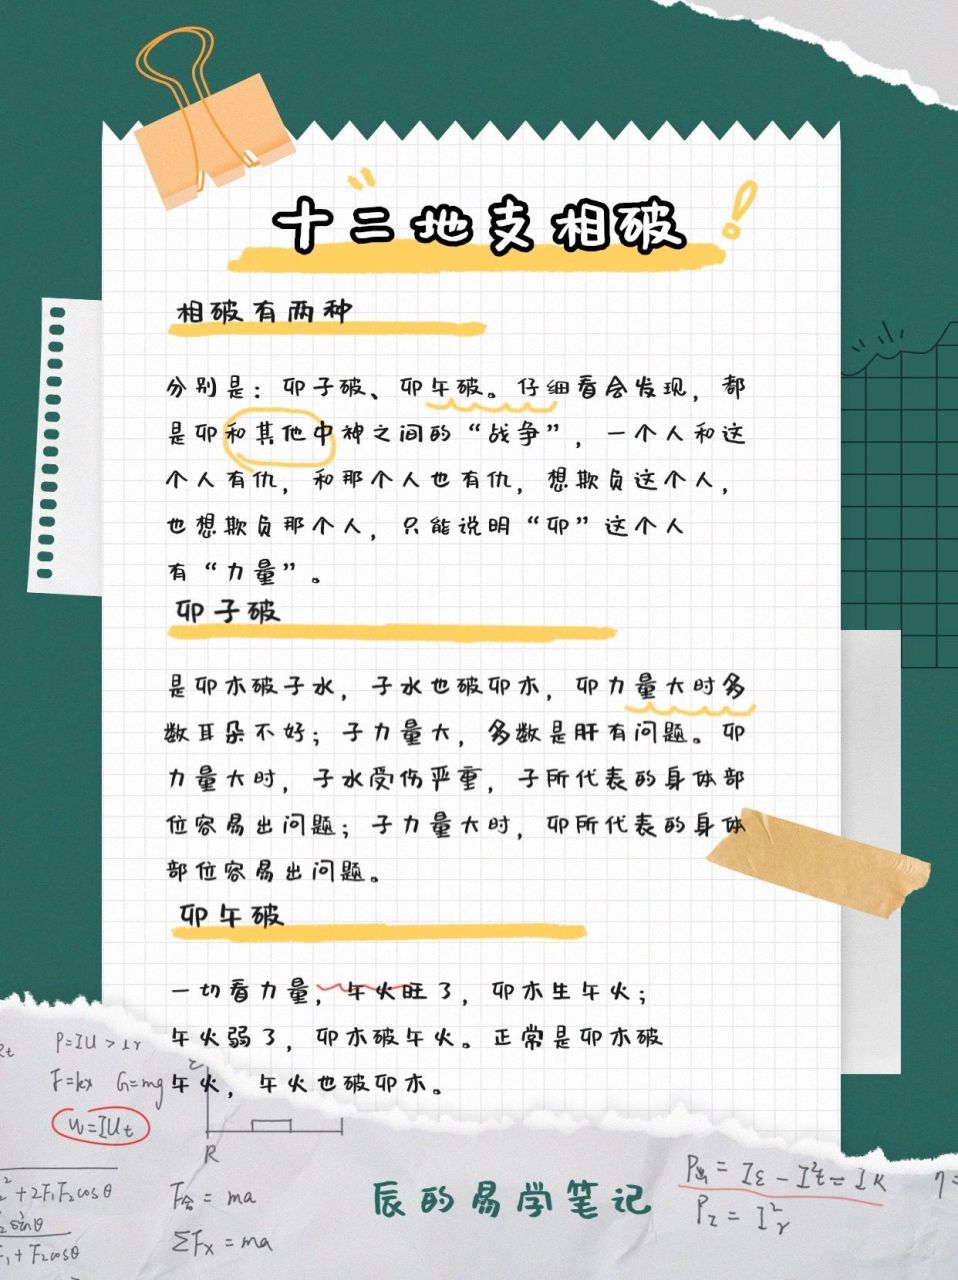 十二地支相破
相破有两种
分别是：卯子破、卯午破。仔细看会发现，都
是卯和其他中神之间的“战争”，一个人和这
个人有仇，和那个人也有仇，想欺负这个人，
也想欺负那个人，只能说明“卯”这个人
有“力量”。
卯子破
是卯木破子水，子水也破卯木，卯力量大时多
数耳朵不好；子力量大，多数是肝有问题。卯
力量大时，子水受伤严重，子所代表的身体部
位容易出问题；子力量大时，卯所代表的身体
部位容易出问题。
卯午破
一切看力量，午火旺了，卯木生午火；
午火弱了，卯木破午火。正常是卯木破
午火，午火也破卯木。
P=IU>
F=kx G=mg
W=IUt
R
+2F₁F₂cosθ
F₂sinθ
F₁+F₂cosθ
F合=ma
ΣFx=ma
辰的易学笔记
P出=Iε-I²r=IR
Pr=I²r
η=